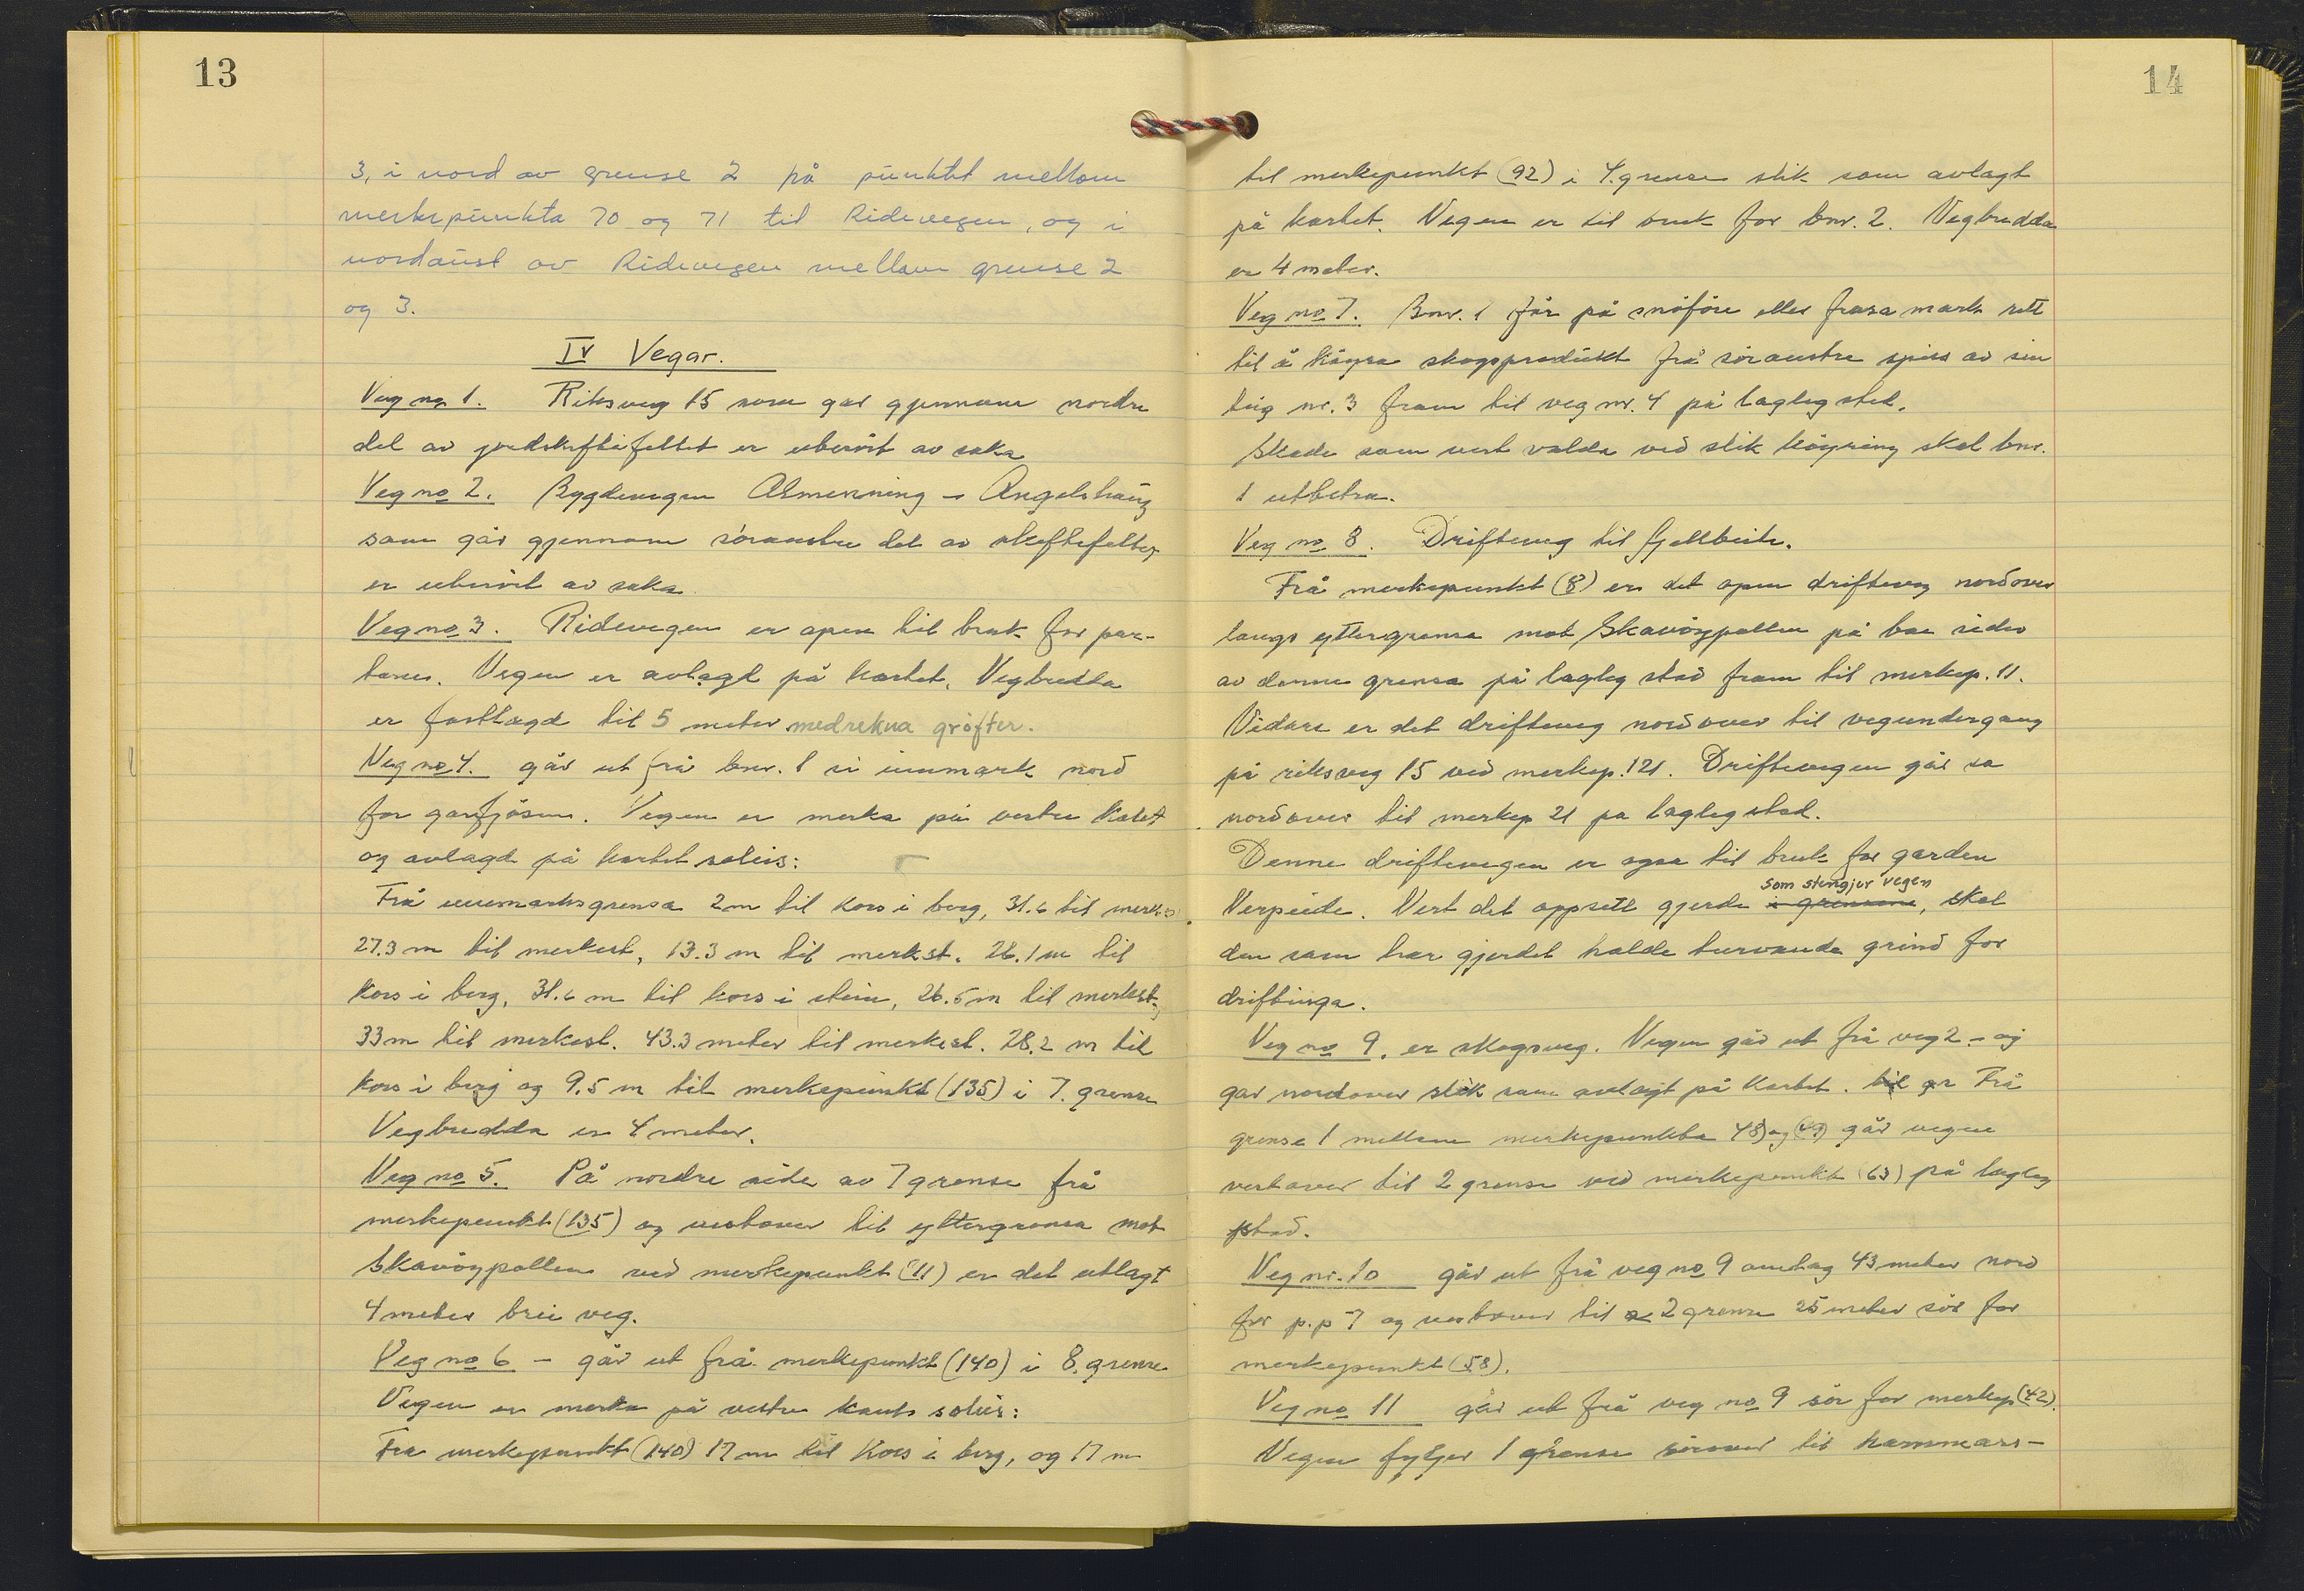 13
3, i nord av grense 2 på punktet mellom
merkepunkta 70 og 71 til Ridevegen, og i
nordaust av Ridevegen mellom grense 2
og 3.
IV Vegar.
Veg no 1. Riksveg 15 som gar gjennom nordre
del av jordskiftefeltet er uberört av saka
Veg no 2. Bygdevegen Almenning - Angelshaug
som går gjennom söraustre del av skiftefeltet,
er uberört av saka.
Veg no 3. Ridevegen er open til bruk for par-
tane. Vegen er avlagt på kartet. Vegbredda
er fastlagd til 5 meter medrekna gröfter.
Veg no 4. går ut frå bnr. 1 si innmark nord
for garfjösen. Vegen er merka på vestre kant
og avlagd på kartet soleis:
Frå innmarksgrensa 2 m til kors i berg, 31.6 til merkest
27.3 m til merkest, 13.3 m til merkst. 26.1 m til
kors i berg, 31.6 m til kors i stein, 26.5 m til merkest.,
33 m til merkest. 43.3 meter til merkest. 28.2 m til
kors i berg og 9.5 m til merkepunkt (135) i 7. grense
Vegbredda er 4 meter.
Veg no 5. På nordre side av 7 grense frå
merkepunkt (135) og vestover til yttergrensa mot
Skavöypollen ved merkepunkt (11) er det utlagt
4 meter brei veg.
Veg no 6 - går ut frå merkepunkt (140) i 8. grense
Vegen er merka på vestre kant soleis:
Fra merkepunkt (140) 17 m til Kors i berg, og 17 m
14
til merkepunkt (92) i 4. grense slik som avlagt
på kartet. Vegen er til bruk for bnr. 2. Vegbredda
er 4 meter.
Veg no 7. Bnr. 1 får på snöföre eller frosa mark rett
til å köyra skogsprodukt frå söraustre spiss av sin
teig nr. 3 fram til veg nr. 4 på lagleg sted.
Skade som vert valda ved slik köyring skal bnr.
1 utbetra.
Veg no 8. Drifteveg til fjellbeite.
Frå merkepunkt (8) er det open drifteveg nordover
langs yttergrensa mot Skavöypollen på bae sider
av denne grensa på lagleg stad fram til merkep. 11.
Vidare er det drifteveg nordover til vegundergang
på riksveg 15 ved merkep. 121. Driftevegen går sa
nordover til merkep 21 pa lagleg stad.
Denne driftevegen er ogsa til bruk for garden
som stengjer vegen
Verpeide. Vert det oppsett gjerde i grensene, skal
den som har gjerdet halde turvande grind for
driftinga.
Veg no 9. er skogsveg. Vegen går ut frå veg 2 - og
gar nordover slik som avlagt på Kartet. til gr Frå
grense 1 mellom merkepunkta 48) og (49) går vegen
vestover til 2 grense ved merkepunkt (63) på lagleg
stad.
Veg nr. 10 går ut frå veg no 9 omlag 43 meter nord
for p.p 7 og vestover til 2 grense 25 meter sör for
merkepunkt (58).
Veg no 11 går ut frå veg no 9 sör for merkep (42).
Vegen fylgjer 1 grense sörover til hammars-